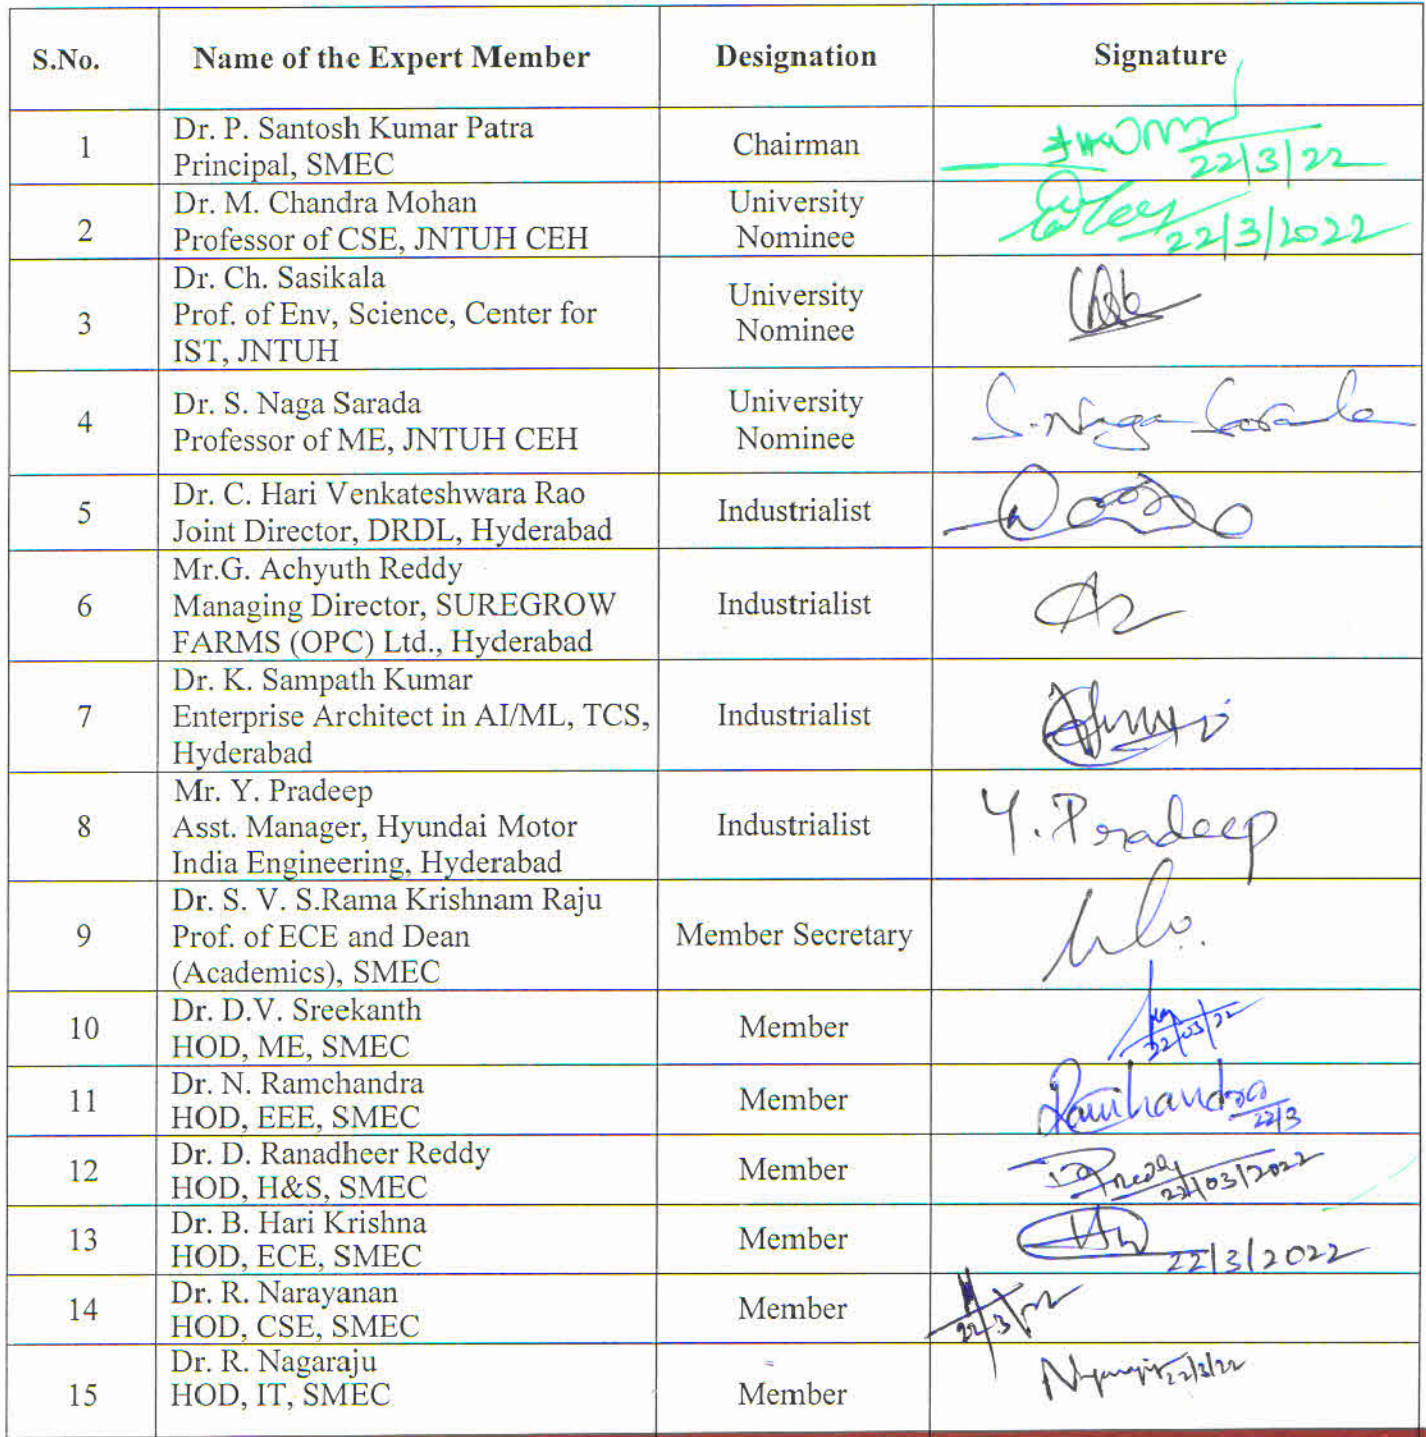 S.No. Name of the Expert Member Designation Signature
1
Dr. P. Santosh Kumar Patra
Principal, SMEC
Chairman
22/3/22
2
Dr. M. Chandra Mohan
Professor of CSE, JNTUH CEH
University
Nominee
22/3/2022
3
Dr. Ch. Sasikala
Prof. of Env, Science, Center for
IST, JNTUH
University
Nominee
4
Dr. S. Naga Sarada
Professor of ME, JNTUH CEH
University
Nominee
S. Naga Sarada
5
Dr. C. Hari Venkateshwara Rao
Joint Director, DRDL, Hyderabad
Industrialist
6
Mr.G. Achyuth Reddy
Managing Director, SUREGROW
FARMS (OPC) Ltd., Hyderabad
Industrialist
7
Dr. K. Sampath Kumar
Enterprise Architect in AI/ML, TCS,
Hyderabad
Industrialist
8
Mr. Y. Pradeep
Asst. Manager, Hyundai Motor
India Engineering, Hyderabad
Industrialist
Y. Pradeep
9
Dr. S. V. S.Rama Krishnam Raju
Prof. of ECE and Dean
(Academics), SMEC
Member Secretary
10
Dr. D.V. Sreekanth
HOD, ME, SMEC
Member
22/03/22
11
Dr. N. Ramchandra
HOD, EEE, SMEC
Member
Ramchandra
22/3
12
Dr. D. Ranadheer Reddy
HOD, H&S, SMEC
Member
22/03/2022
13
Dr. B. Hari Krishna
HOD, ECE, SMEC
Member
22/3/2022
14
Dr. R. Narayanan
HOD, CSE, SMEC
Member
22/3/22
15
Dr. R. Nagaraju
HOD, IT, SMEC
Member
22/3/22